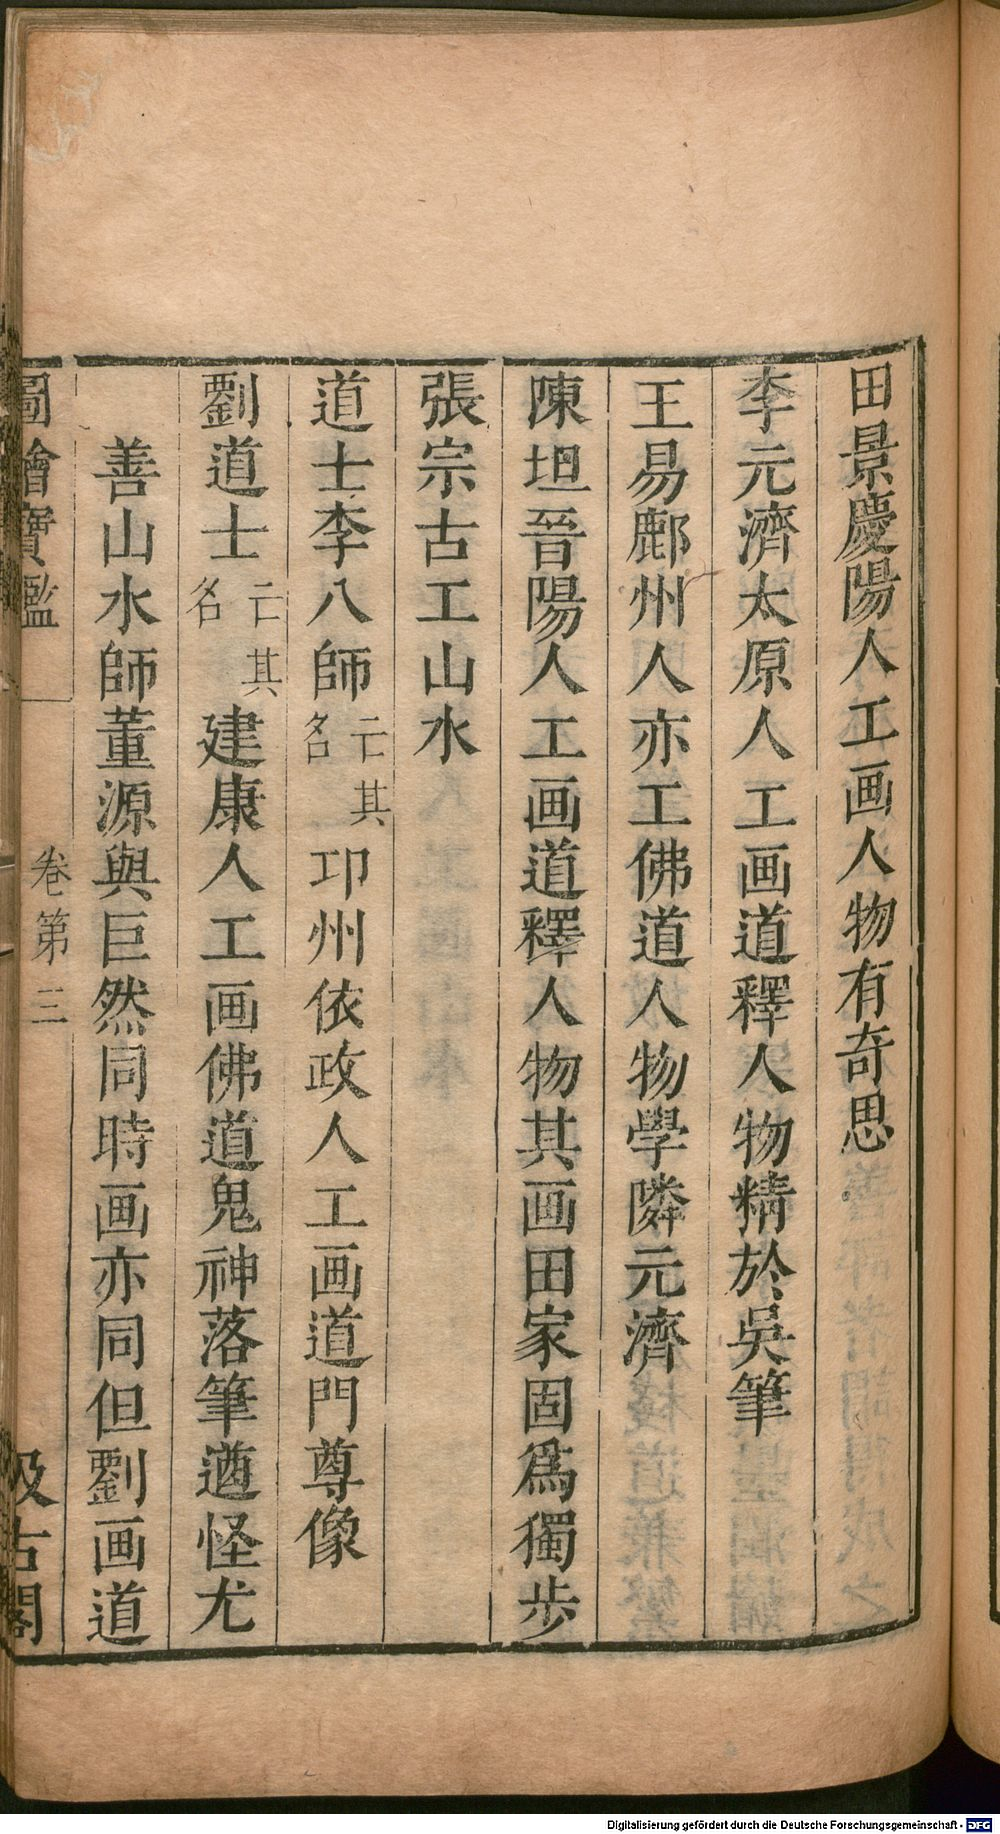 田景慶陽人工画人物有奇思
李元濟太原人工画道釋人物精於吳筆
王易鄜州人亦工佛道人物學隣元濟
陳坦晉陽人工画道釋人物其画田家固爲獨步
張宗古工山水
道士李八師亡其名邛州依政人工画道門尊像
劉道士亡其名建康人工画佛道鬼神落筆遒怪尤
善山水師董源與巨然同時画亦同但劉画道
圖繪寶鑑 卷第三 汲古閣
Digitalisierung gefördert durch die Deutsche Forschungsgemeinschaft - DFG